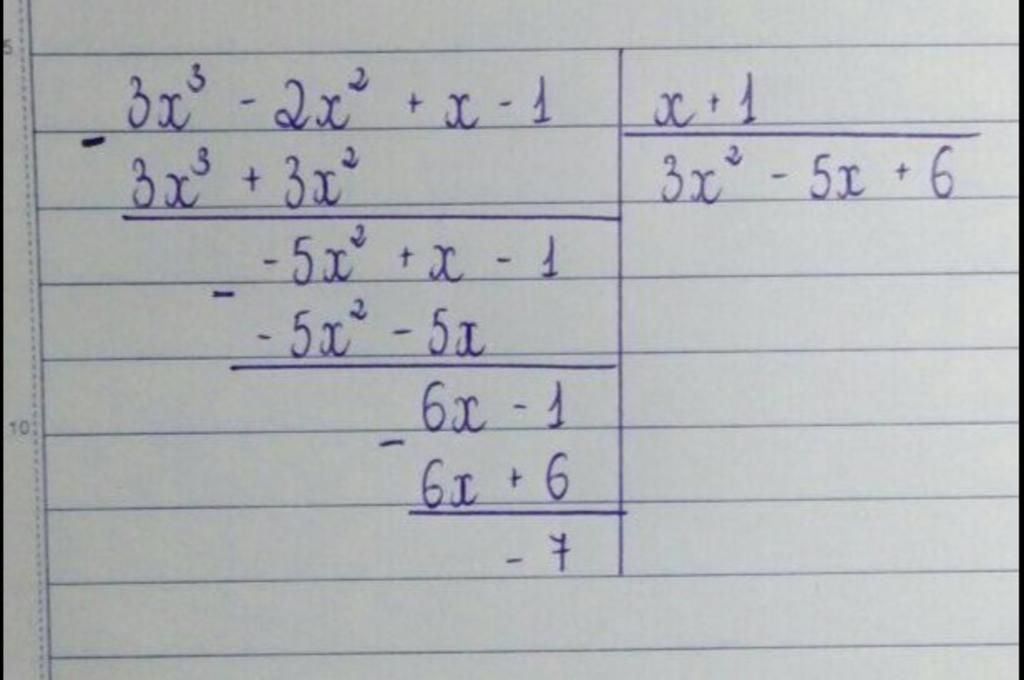 5
3x³ - 2x² + x - 1 | x + 1
- 3x³ + 3x² | 3x² - 5x + 6
-5x² + x - 1
- -5x² - 5x
6x - 1
10
- 6x + 6
- 7